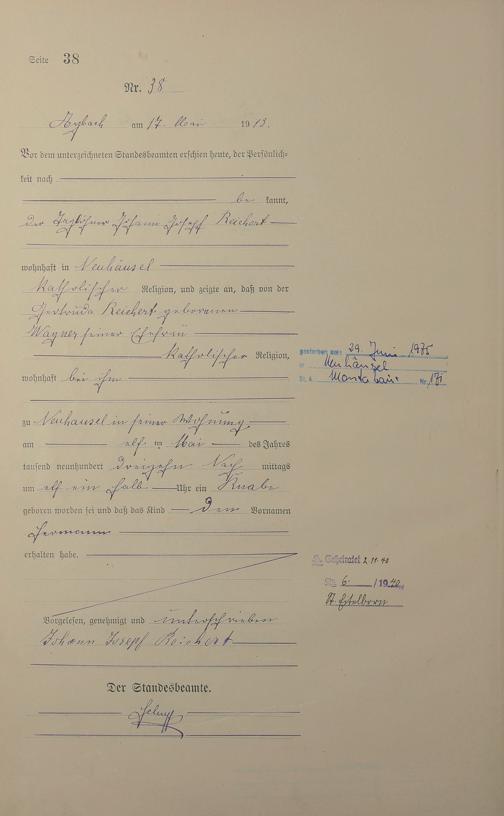 Seite 38
Nr. 38
Arzbach am 17. Mai 1913.
Vor dem unterzeichneten Standesbeamten erschien heute, der Persönlich-
keit nach
be kannt,
der Taglöhner Johann Joseph Reichert
wohnhaft in Neuhäusel
katholischer Religion, und zeigte an, daß von der
Gertruda Reichert geborenen
Wagner seiner Ehefrau
katholischer Religion,
wohnhaft bei ihm
zu Neuhäusel in seiner Wohnung
am elf ten Mai des Jahres
tausend neunhundert dreizehn Nach mittags
um elf ein halb Uhr ein Knabe
geboren worden sei und daß das Kind den Vornamen
Hermann
erhalten habe.
Vorgelesen, genehmigt und unterschrieben
Johann Josepf Reichert
Der Standesbeamte.
gestorben am: 29. Juni 1975
Neuhäusel
St. A. Montabaur Nr. 131
Geheiratet 2.11.40
Nr. 6 /1940
St